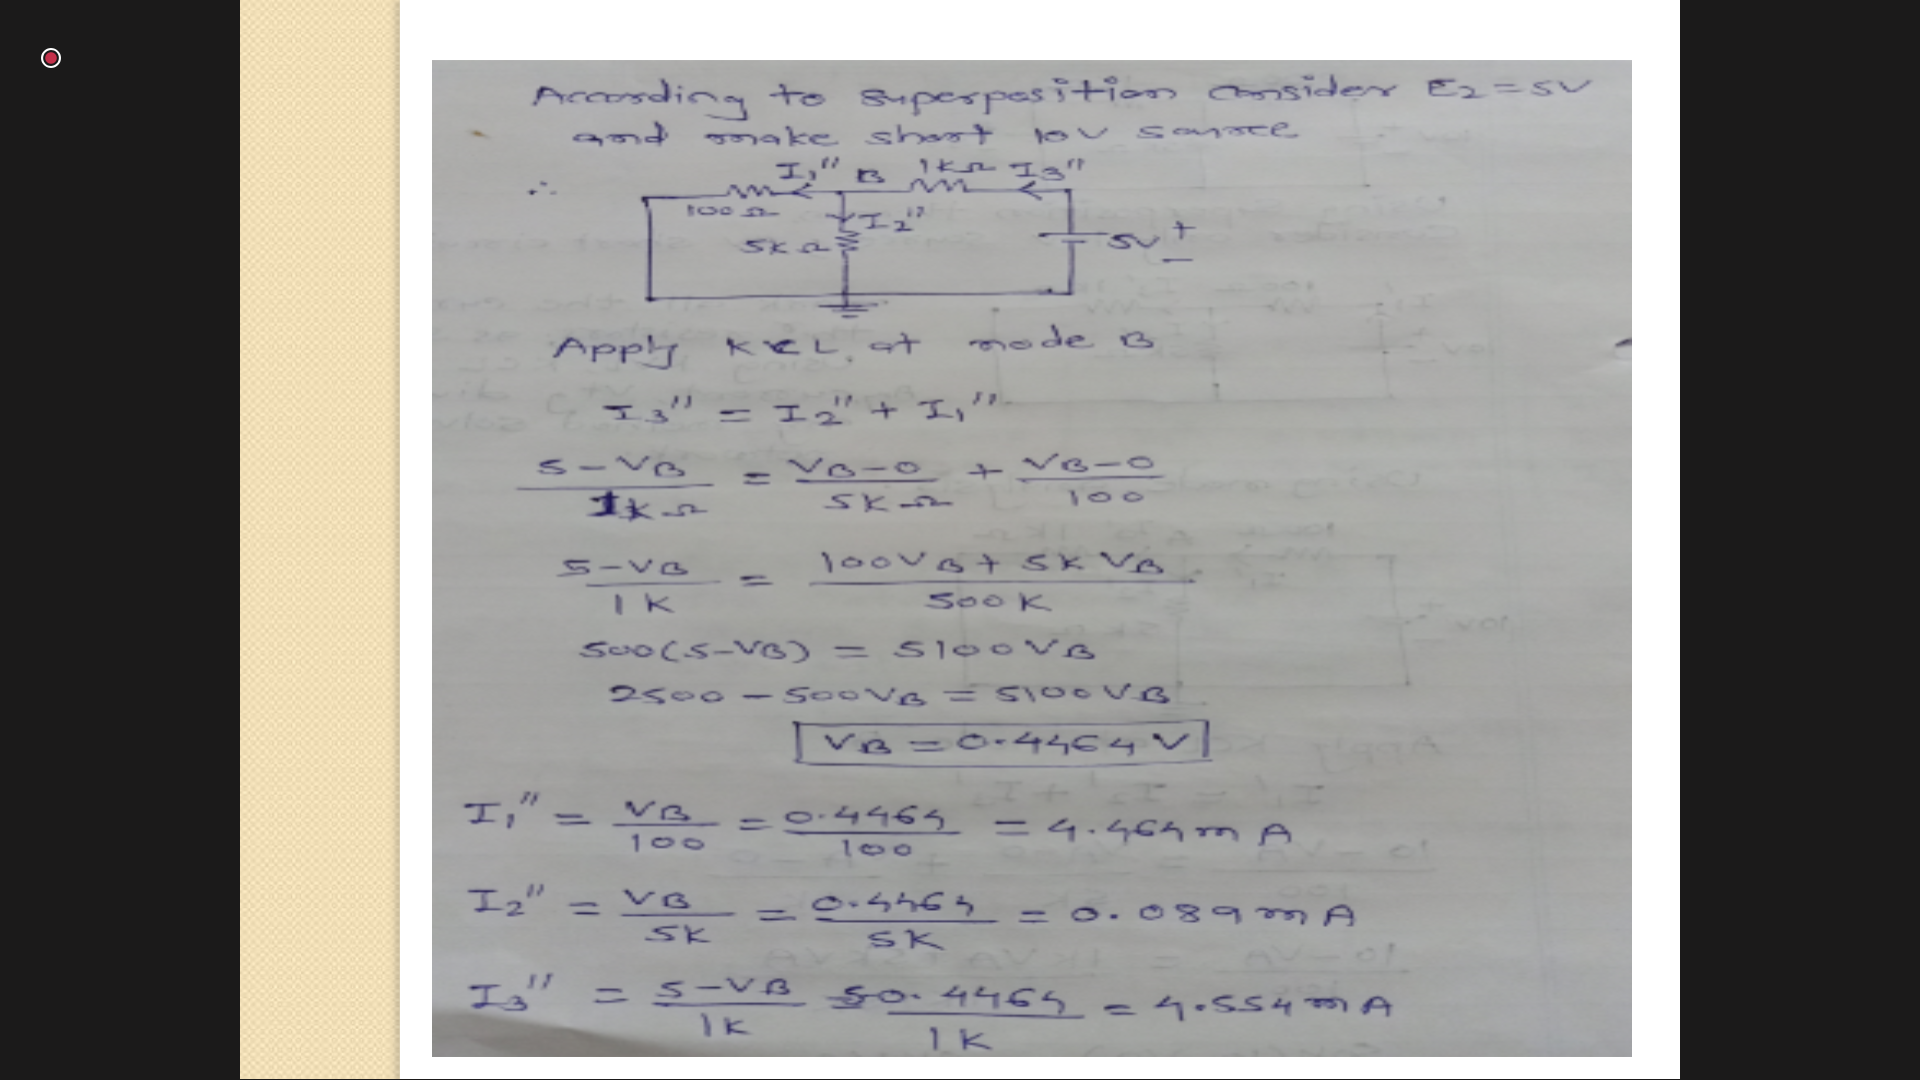 According to superposition consider E2=5V
and make short 10V source
∴ I1'' B 1kΩ I3''
100Ω I2''
5kΩ 5V + −
Apply KCL at node B
I3'' = I2'' + I1''
5-VB / 1kΩ = VB-0 / 5kΩ + VB-0 / 100
5-VB / 1K = 100VB + 5K VB / 500K
500(5-VB) = 5100VB
2500 - 500VB = 5100VB
VB = 0.4464V
I1'' = VB / 100 = 0.4464 / 100 = 4.464mA
I2'' = VB / 5K = 0.4464 / 5K = 0.089mA
I3'' = 5-VB / 1K = 50.4464 / 1K = 4.554mA